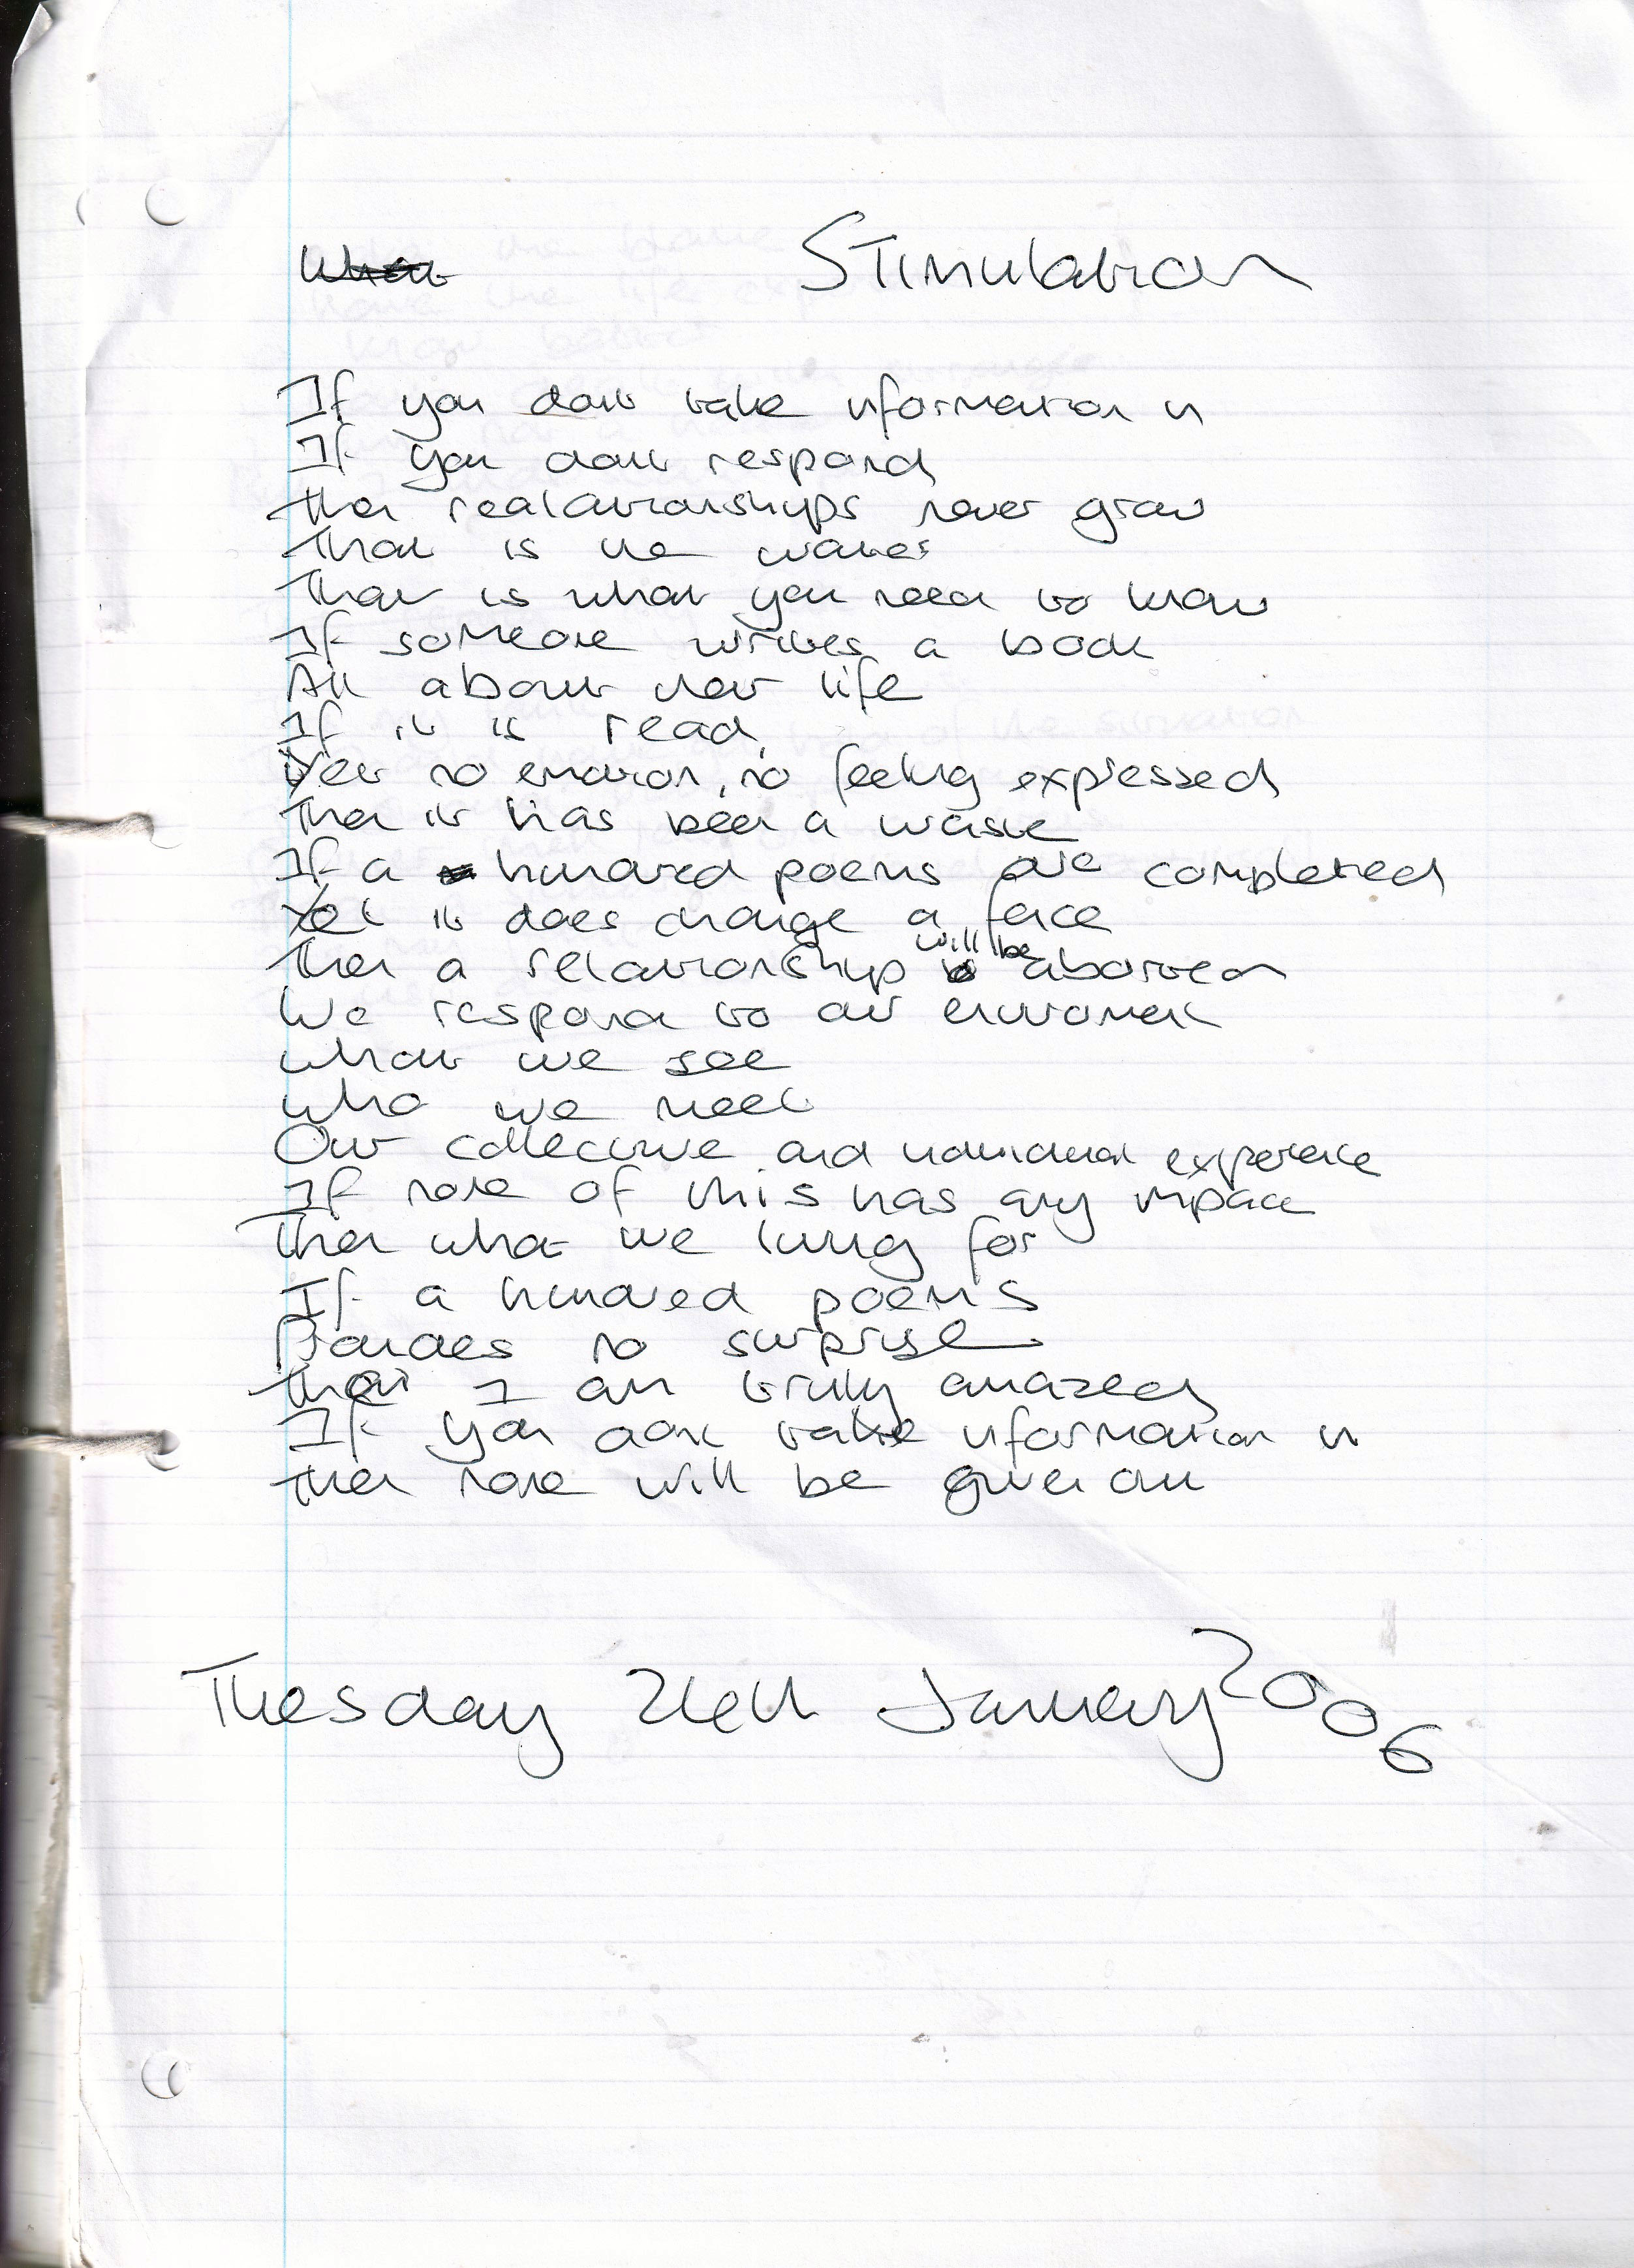 Stimulation
If you dont take information in
If you dont respond
Then realationships never grow
That is the water
That is what you need to know
If someone writes a book
All about their life
If it is read,
Yet no emotion, no feeling expressed
Then it has been a waste
If a hundred poems are completed
Yet it does change a face
Then a relationship will be aborted
We respond to our enviroment
What we see
Who we meet
Our collective and individual experience
If none of this has any impact
Then what we living for
If a hundred poems
no surprise
Then I am truly amazed
If you dont take information in
Then none will be given out
Tuesday 24th January 2006